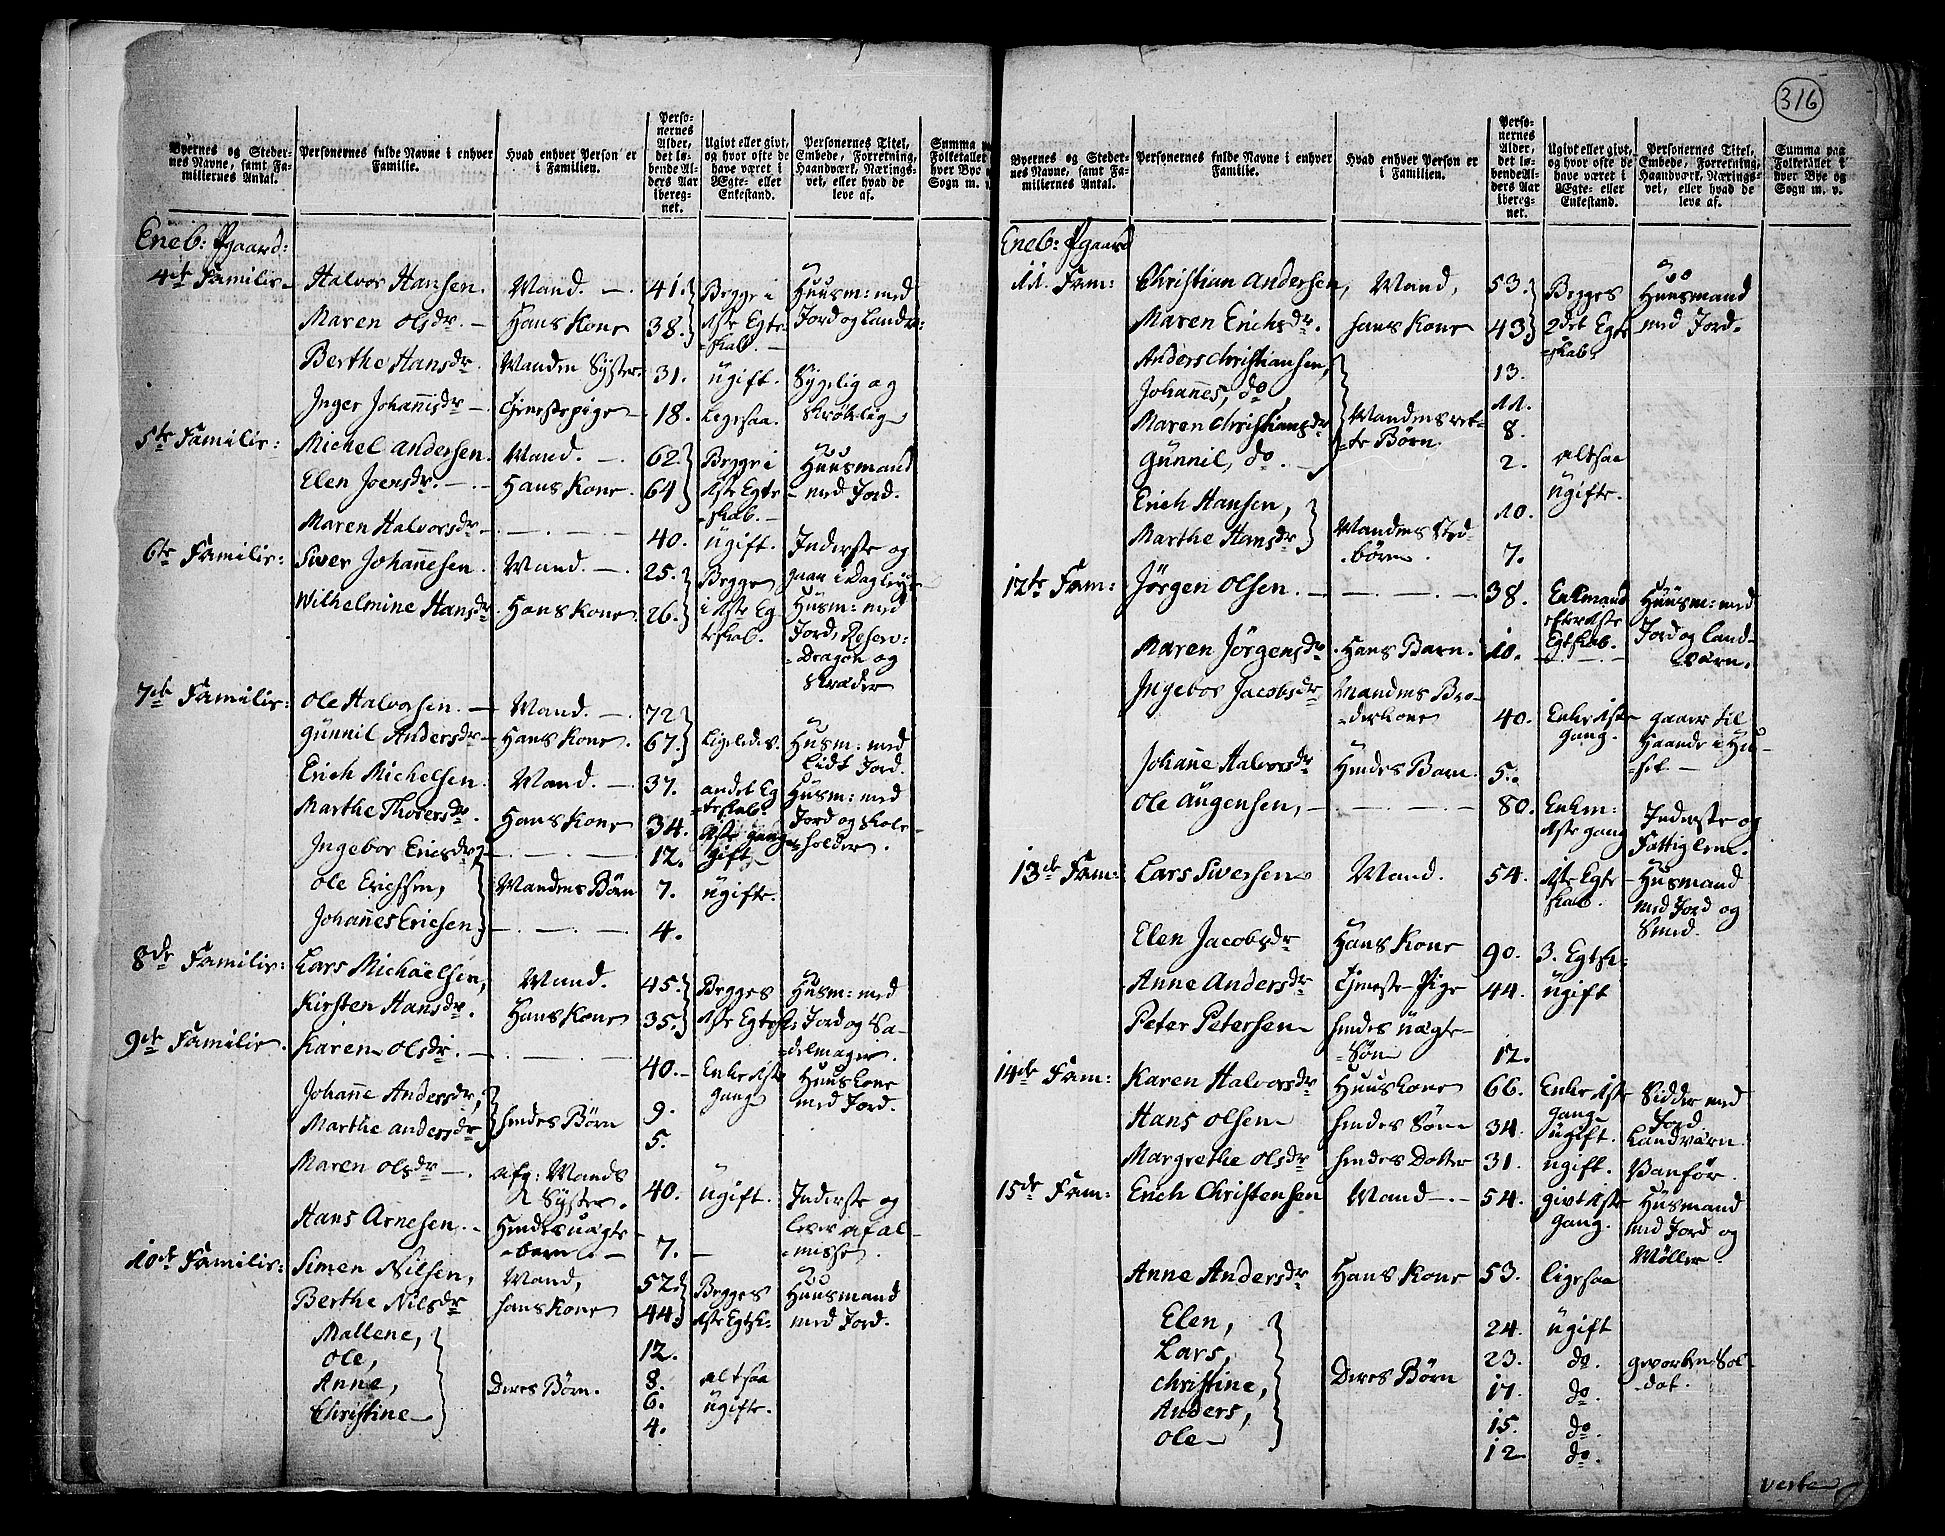 316
Byernes og Steder-
nes Navne, samt Fa-
miliernes Antal.
Personernes fulde Navne i enhver
Familie.
Hvad enhver Person er
i Familien.
Perso-
nernes
Alder,
det lø-
bende Al-
ders Aar
iberegnet.
Ugivt eller givt,
og hvor ofte de
have været i
Ægte- eller
Enkestand.
Personernes Titel,
Embede, Forretning,
Haandværk, Nærings-
vei, eller hvad de
leve af.
Summa paa
Folketallet i
hver Bye og
Sogn m. v.
Eneb: Pgaard:
4de Familie Halvor Hansen. Mand. 41. Begge i Huusm: med
Maren Olsdr. Hans Kone 38. 1ste Egte Jord og Landv:
skab.
Berthe Hansdr. Manden Syster. 31. ugift. Sygelig og
Inger Johannisdr Tjenestepige 18. Ligesaa. Skrøbelig
5te Familie: Michel Andersen. Mand. 62. Begge i Huusmand
Elen Joensdr. Hans Kone. 64 1ste Egte med Jord.
skab.
Maren Halvorsdr 40. ugift. Inderste og
gaar i Dagleye
6te Familie: Siver Johannesen. Mand. 25. Begge Huusm: med
Wilhelmine Hansdr. Hans Kone. 26. i 1ste Eg Jord, Reserv:
teskab. Dragon og
Skræder
7de Familie: Ole Halvorsen. Mand. 72
Gunnil Andersdr Hans Kone. 67. Ligeledes. Huusm: med
Lidt Jord.
Erich Michelsen. Mand. 37. andet Eg Huusm: med
teskab.
Marthe Thorersdr. Hans Kone 34. 1ste gang Jord og Skole
gift holder.
Ingebor Ericsdr 12.
Ole Erichsen, Mandens Børn 7. ugifte.
Johannes Ericsen 4.
8de Familie: Lars Michaelsen, Mand. 45. Begges Huusm: med
Kirsten Hansdr. Hans Kone 35. 1ste Egtesk: Jord og Sa-
delmager.
9de Familie. Karen Olsdr. 40. Enke 1ste Huuskone
gang med Jord.
Johanne Andersdr, Hendes Børn 9.
Marthe Andersdr 5.
Maren Olsdr. afg: Mands
Syster. 40. ugift. Inderste og
Hans Arnesen. Hendes uægte lever af al-
barn. 7. misse.
10de Familie: Simen Nilsen, Mand, 52. Begges Huusmand
Berthe Nilsdr hans Kone 44. 1ste Egtsk: med Jord.
Mallene, 12.
Ole, 8. altsaa
Anne, Deres Børn. 6. ugifte.
Christine 4.
Byernes og Steder-
nes Navne, samt Fa-
miliernes Antal.
Personernes fulde Navne i enhver
Familie.
Hvad enhver Person er
i Familien.
Perso-
nernes
Alder,
det lø-
bende Al-
ders Aar
iberegnet.
Ugivt eller givt,
og hvor ofte de
have været i
Ægte- eller
Enkestand.
Personernes Titel,
Embede, Forretning,
Haandværk, Nærings-
vei, eller hvad de
leve af.
Summa paa
Folketallet i
hver Bye og
Sogn m. v.
Eneb: Pgaard
11. Fam: Christian Andersen, Mand, 53. Begges Huusmand
Maren Erichsdr. hans Kone 43 2det Egte med Jord.
skab.
Anders Christiansen, 13.
Johannes, do 11.
Maren Christiansdr Mandens ek- 8.
Gunnil, do. te Børn. 2. altsaa
ugifte.
Erich Hansen, 10.
Marthe Hansdr Mandens Sted-
børn. 7.
12te Fam: Jörgen Olsen. 38. Enkmand Huusm: med
efter 1ste Jord og Land-
Maren Jörgensdr. Hans Barn. 10. Egtskab. værn.
Ingebor Jacobsdr Mandens Bro-
derkone 40. Enke 1ste gaaer til
gang. Haande i Hu-
Johanne Halvorsdr Hendes Barn. 5. set.
Ole Augensen, 80. Enkm: Inderste og
1ste gang Fattiglem.
13de Fam: Lars Siversen Mand. 54. 1ste Egte Huusmand
skab. med Jord og
Smed.
Elen Jacobsdr Hans Kone 90. 3. Egtsk:
Anne Andersdr Tjeneste Pige 44. ugift
Peter Petersen hendes uægte
Søn 12.
14de Fam: Karen Halvorsdr Huuskone 66. Enke 1ste Sidder med
gang Jord
Hans Olsen hendes Søn 34. ugift. Landværn.
Margrethe Olsdr hendes Dotter 31. ugift. Vanför.
15de Fam: Erich Christensen Mand. 54. givt 1ste Huusmand
gang. med Jord og
Möller.
Anne Andersdr Hans Kone 53. ligesaa
Elen, 24. ugift
Lars, 23. do. gevorben Sol-
Christine, Deres Børn 17. do dat.
Anders, 15. do.
Ole 12 do.
verte